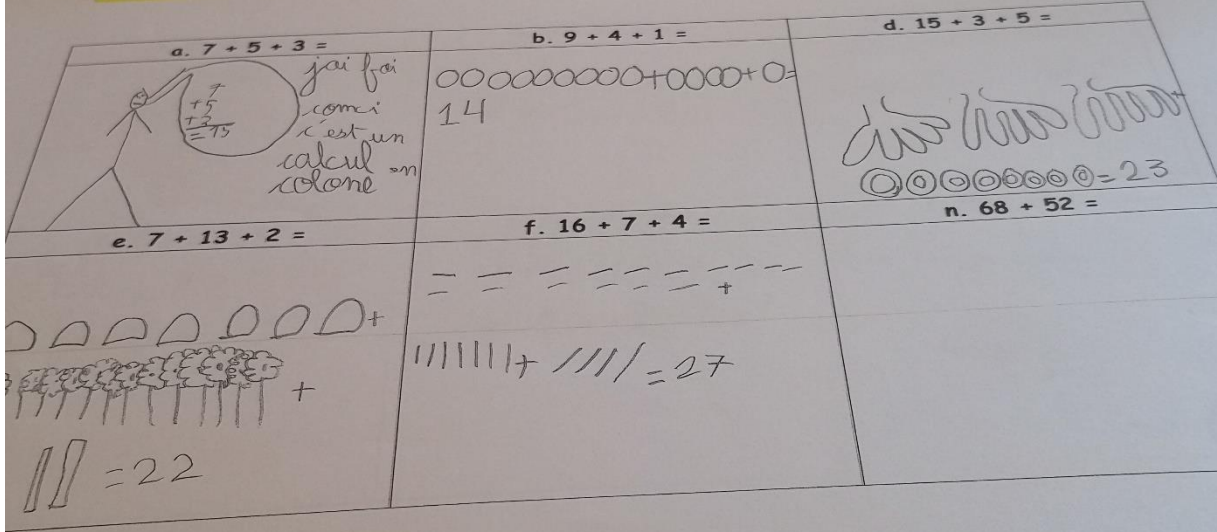 a. 7 + 5 + 3 =
7
+5
+3
=15
jai fai
comci
c'est un
calcul en
colone
b. 9 + 4 + 1 =
OOOOOOOOO+OOOO+O=
14
d. 15 + 3 + 5 =
=23
e. 7 + 13 + 2 =
+
+
=22
f. 16 + 7 + 4 =
+
|||||||+ ////=27
n. 68 + 52 =